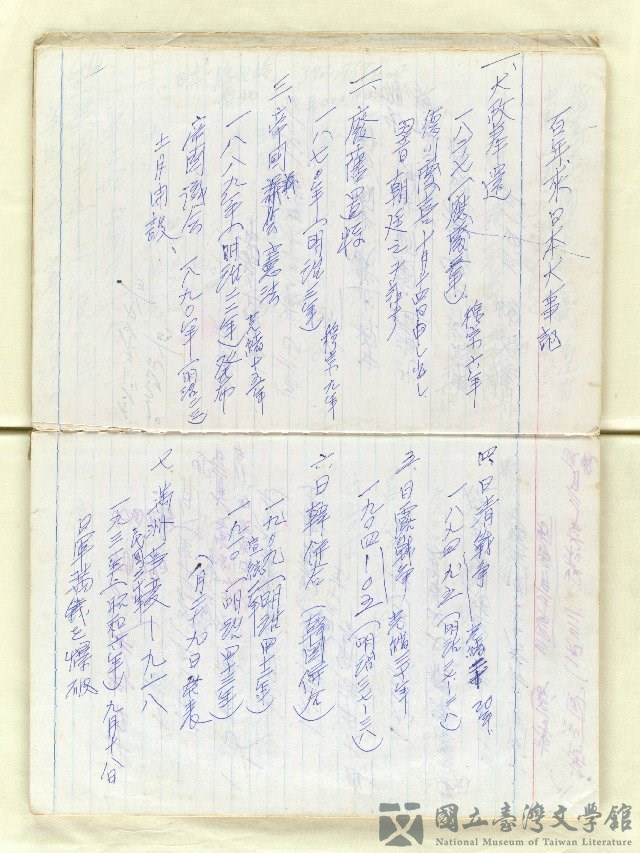 百年來日本大事記
一、大政奉還
一八六七(應慶三年) 穆宗六年
德川慶喜十月十四日申し出し
翌日朝廷之ヲ許ス
二、廢藩置縣
一八七〇年(明治三年) 穆宗九年
三、帝國議会憲法
一八八九年(明治二二年)發布 光緒十五年
帝國議会 一八九〇年(明治二三)
十一月開設、
四 日清戰爭 光緒 20年
一八九四、九五(明治二七-二八)
五 日露戰爭 光緒三十年
一九〇四-〇五(明治三七-三八)
六 日韓併合(韓國併合)
一九〇九(明治四十二年)
宣統二年
一九一〇(明治四十三年)
八月二十九日發表
七、滿洲事變-九一八
民國二十年
一九三一年(昭和六年)九月十八日
日軍 鐵を爆破
國立臺灣文學館
National Museum of Taiwan Literature